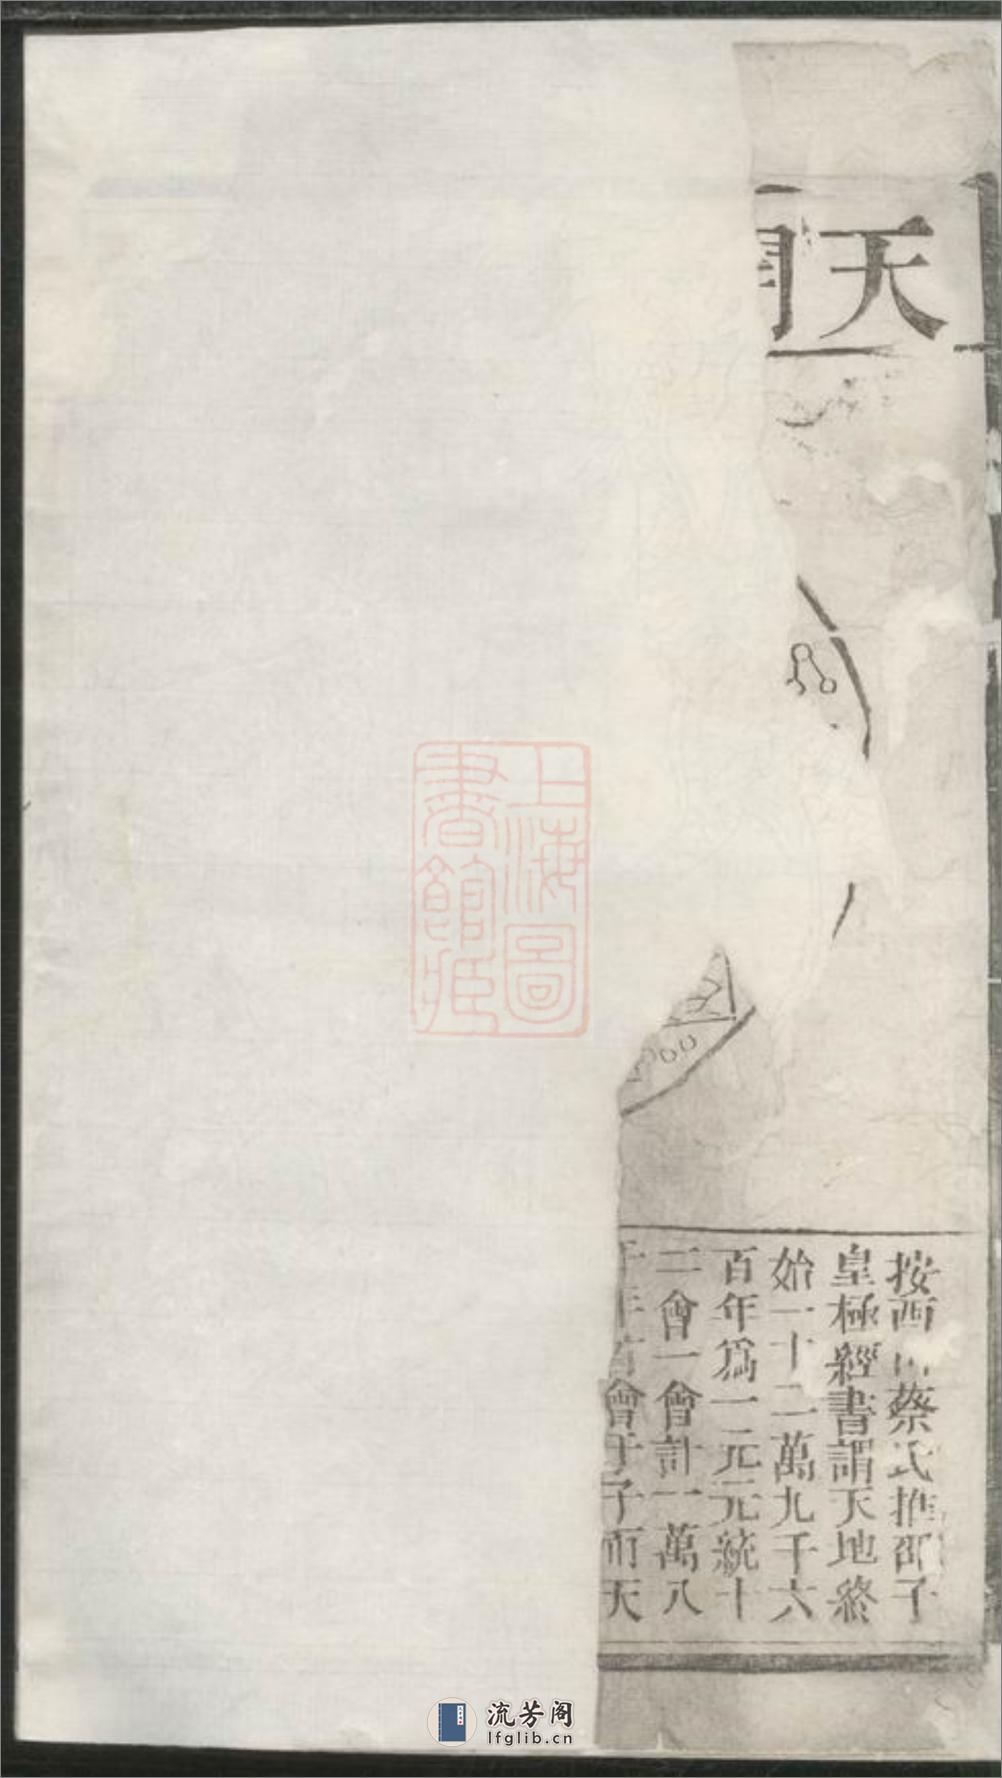 天
按西山蔡氏推邵子
皇極經書謂天地終
始一十二萬九千六
百年爲一元元統十
二會一會計一萬八
會于子而天
上海圖
書館藏
流芳阁
lfglib.cn